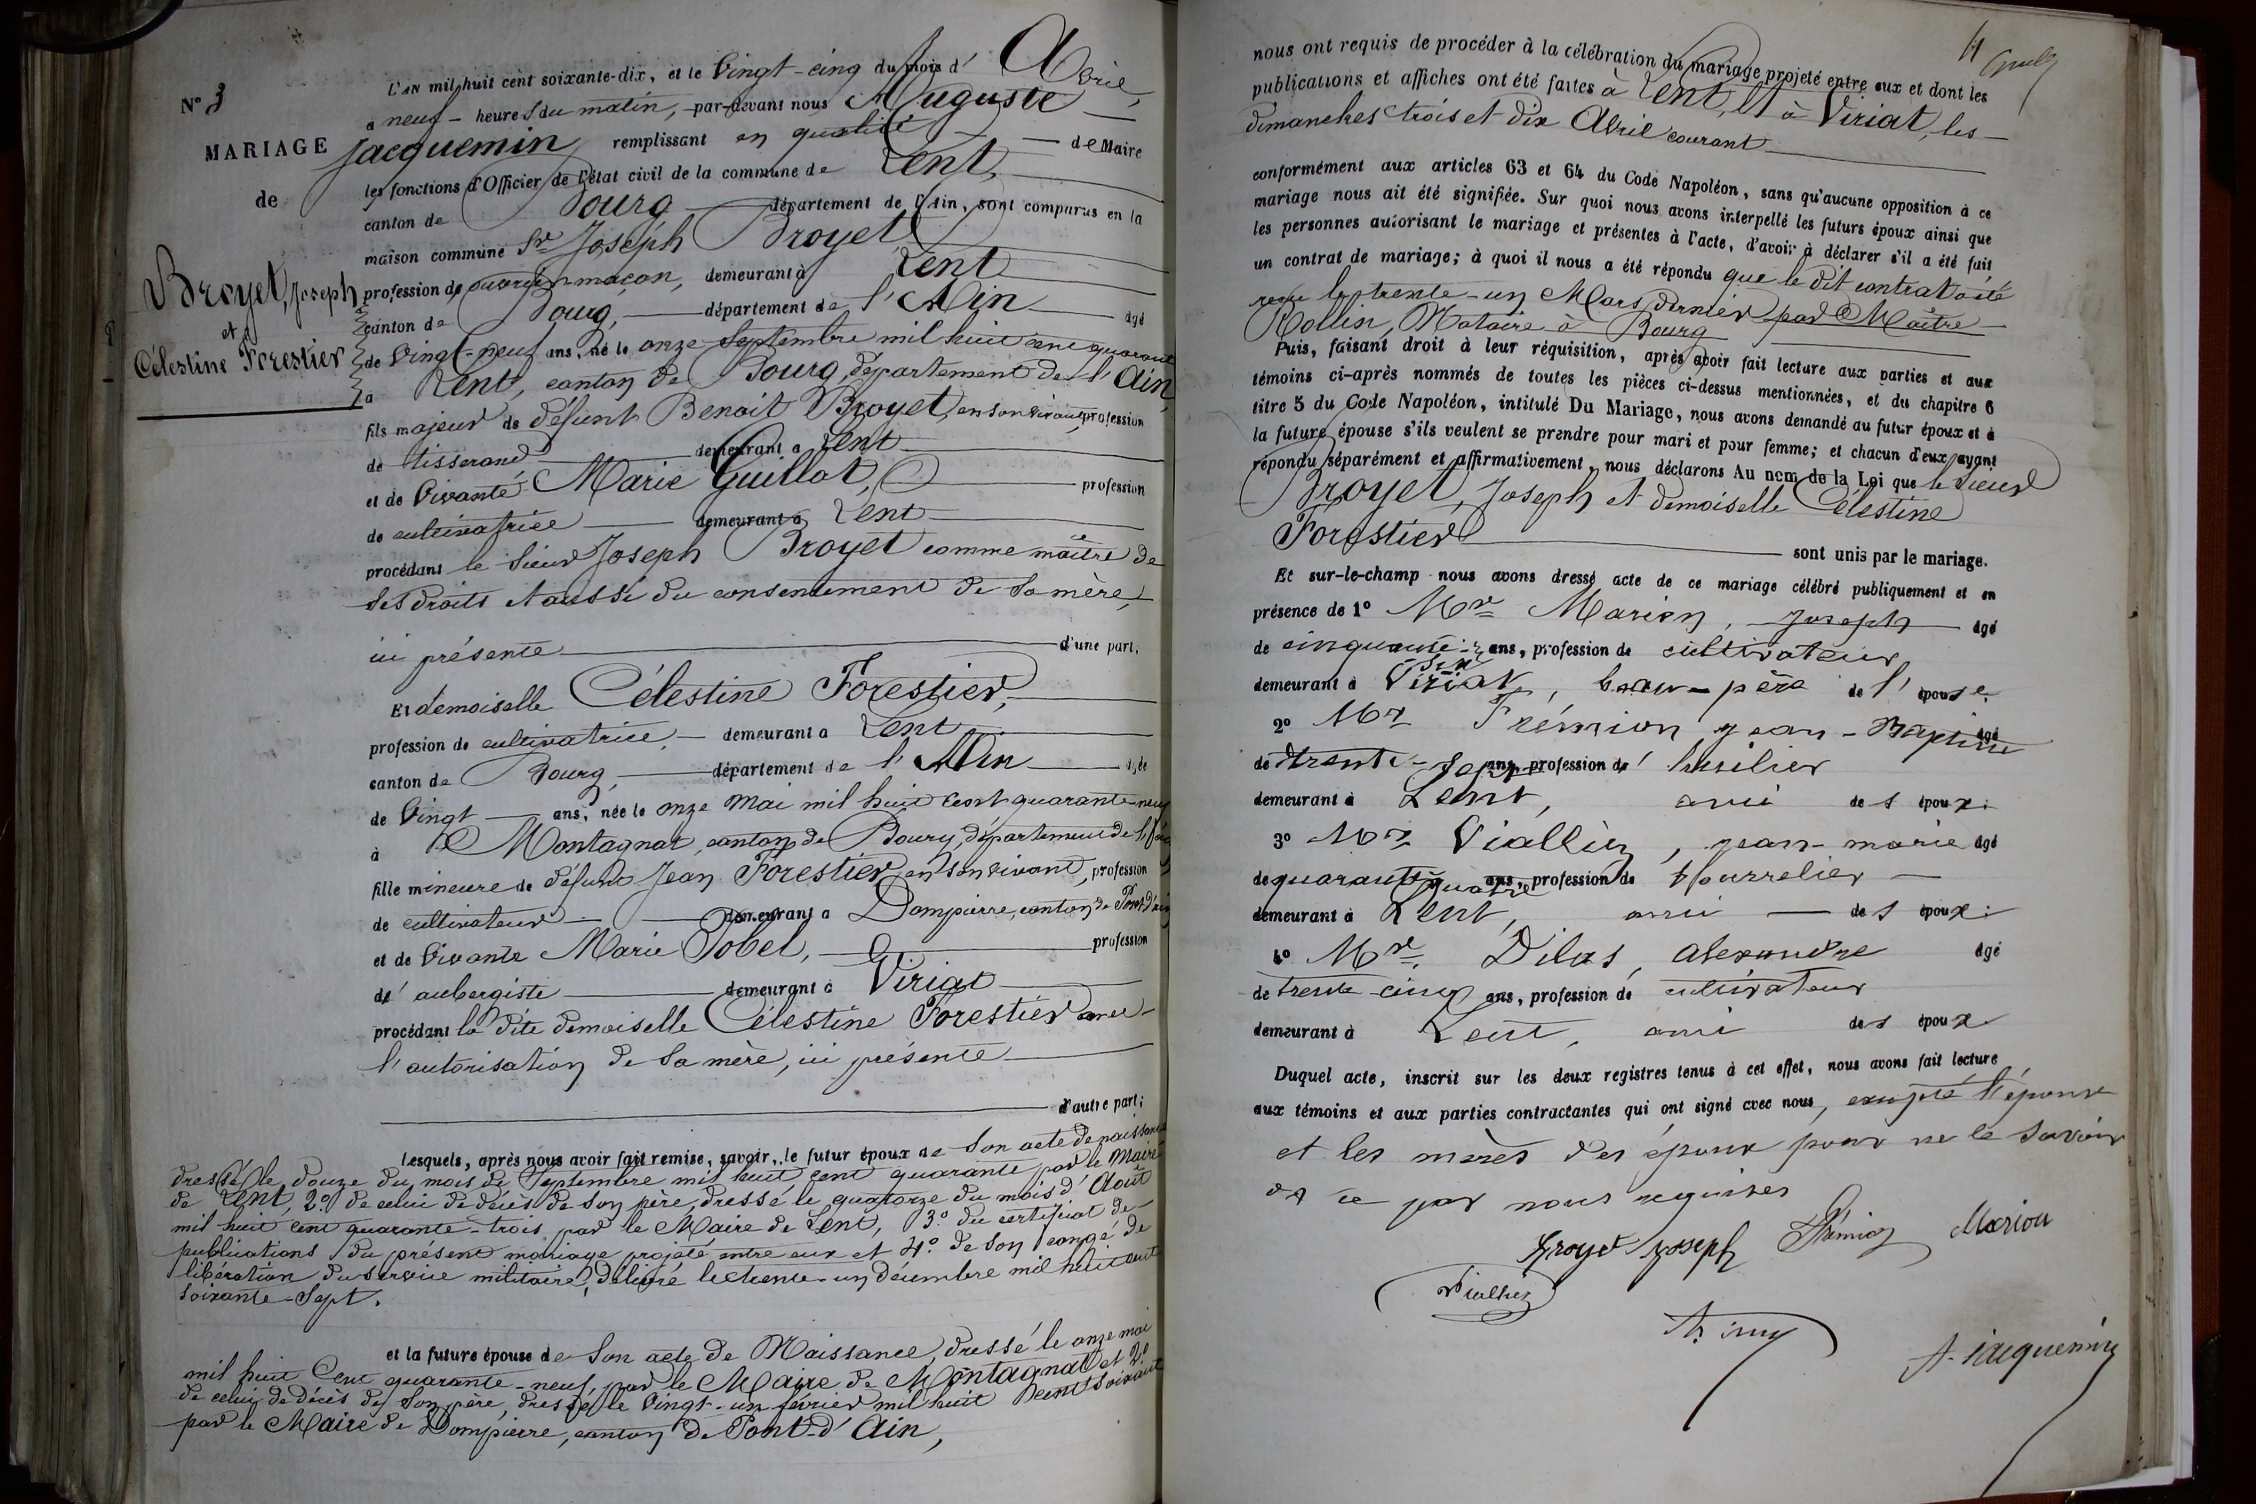 N° 3
MARIAGE
de
Broyet, Joseph
et
Célestine Forestier
L'AN mil huit cent soixante-dix, et le Vingt-cinq du mois d' Avril,
a neuf - heures du matin, par-devant nous Auguste
Jacquemin remplissant en qualité de Maire
les fonctions d'Officier de l'état civil de la commune de Lent,
canton de Bourg département de l'Ain, sont comparus en la
maison commune Sr Joseph Broyet
profession de ouvrier maçon, demeurant à Lent
canton de Bourg, département de l'Ain âgé
de Vingt-neuf ans, né le onze Septembre mil huit cent quarante
à Lent, canton de Bourg, département de l'Ain,
fils majeur de défunt Benoit Broyet, en son vivant, profession
de tisserand demeurant à Lent
et de vivante Marie Guillot, profession
de cultivatrice demeurant à Lent
procédant le Sieur Joseph Broyet comme maître de
ses droits et aussi du consentement de sa mère,
ici présente d'une part,
Et demoiselle Célestine Forestier,
profession de cultivatrice, demeurant à Lent
canton de Bourg, département de l'Ain âgée
de Vingt ans, née le onze Mai mil huit cent quarante-neuf
à Montagnat, canton de Bourg, département de l'Ain
fille mineure de défunt Jean Forestier, en son vivant, profession
de cultivateur demeurant à Dompierre, canton de Pont d'Ain
et de vivante Marie Pobel, profession
d'aubergiste demeurant à Viriat
procédant la dite demoiselle Célestine Forestier avec
l'autorisation de sa mère, ici présente
d'autre part;
Lesquels, après nous avoir fait remise, savoir, le futur époux de son acte de naissance
dressé le douze du mois de Septembre mil huit cent quarante par le Maire
de Lent, 2° de celui de décès de son père, dressé le quatorze du mois d'Août
mil huit cent quarante-trois, par le Maire de Lent, 3° du certificat de
publications du présent mariage projeté entre eux et 4° de son congé de
libération du service militaire, délivré le trente-un décembre mil huit cent
soixante-sept.
et la future épouse de son acte de Naissance, dressé le onze mai
mil huit cent quarante-neuf, par le Maire de Montagnat et 2°
de celui de décès de son père, dressé le vingt-un février mil huit cent soixante
par le Maire de Dompierre, canton de Pont-d'Ain,
4
nous ont requis de procéder à la célébration du mariage projeté entre eux et dont les
publications et affiches ont été faites à Lent, et à Viriat, les
dimanches trois et dix Avril courant
conformément aux articles 63 et 64 du Code Napoléon, sans qu'aucune opposition à ce
mariage nous ait été signifiée. Sur quoi nous avons interpellé les futurs époux ainsi que
les personnes autorisant le mariage et présentes à l'acte, d'avoir à déclarer s'il a été fait
un contrat de mariage; à quoi il nous a été répondu que le dit contrat a été
reçu le trente-un Mars dernier par Maître
Rollin, Notaire à Bourg
Puis, faisant droit à leur réquisition, après avoir fait lecture aux parties et aux
témoins ci-après nommés de toutes les pièces ci-dessus mentionnées, et du chapitre 6
titre 5 du Code Napoléon, intitulé Du Mariage, nous avons demandé au futur époux et à
la future épouse s'ils veulent se prendre pour mari et pour femme; et chacun d'eux ayant
répondu séparément et affirmativement, nous déclarons Au nom de la Loi que le sieur
Broyet, Joseph et demoiselle Célestine
Forestier
sont unis par le mariage.
Et sur-le-champ nous avons dressé acte de ce mariage célébré publiquement et en
présence de 1° Mr Marion, Joseph âgé
de cinquante-six ans, profession de cultivateur
demeurant à Viriat, beau-père de l'épouse.
2° Mr Frémion Jean-Baptiste âgé
de trente-sept ans, profession d'
demeurant à Lent, ami des époux.
3° Mr Viallier, jean-marie âgé
de quarante quatre ans, profession de bourrelier
demeurant à Lent, ami des époux.
4° Mr Dilas, alexandre âgé
de trente-cinq ans, profession de cultivateur
demeurant à Lent, ami des époux
Duquel acte, inscrit sur les deux registres tenus à cet effet, nous avons fait lecture
aux témoins et aux parties contractantes qui ont signé avec nous, excepté l'épouse
et les mères des époux pour ne le savoir
de ce par nous requises
Broyet joseph Frémion Marion
Viallier
A. Jacquemin